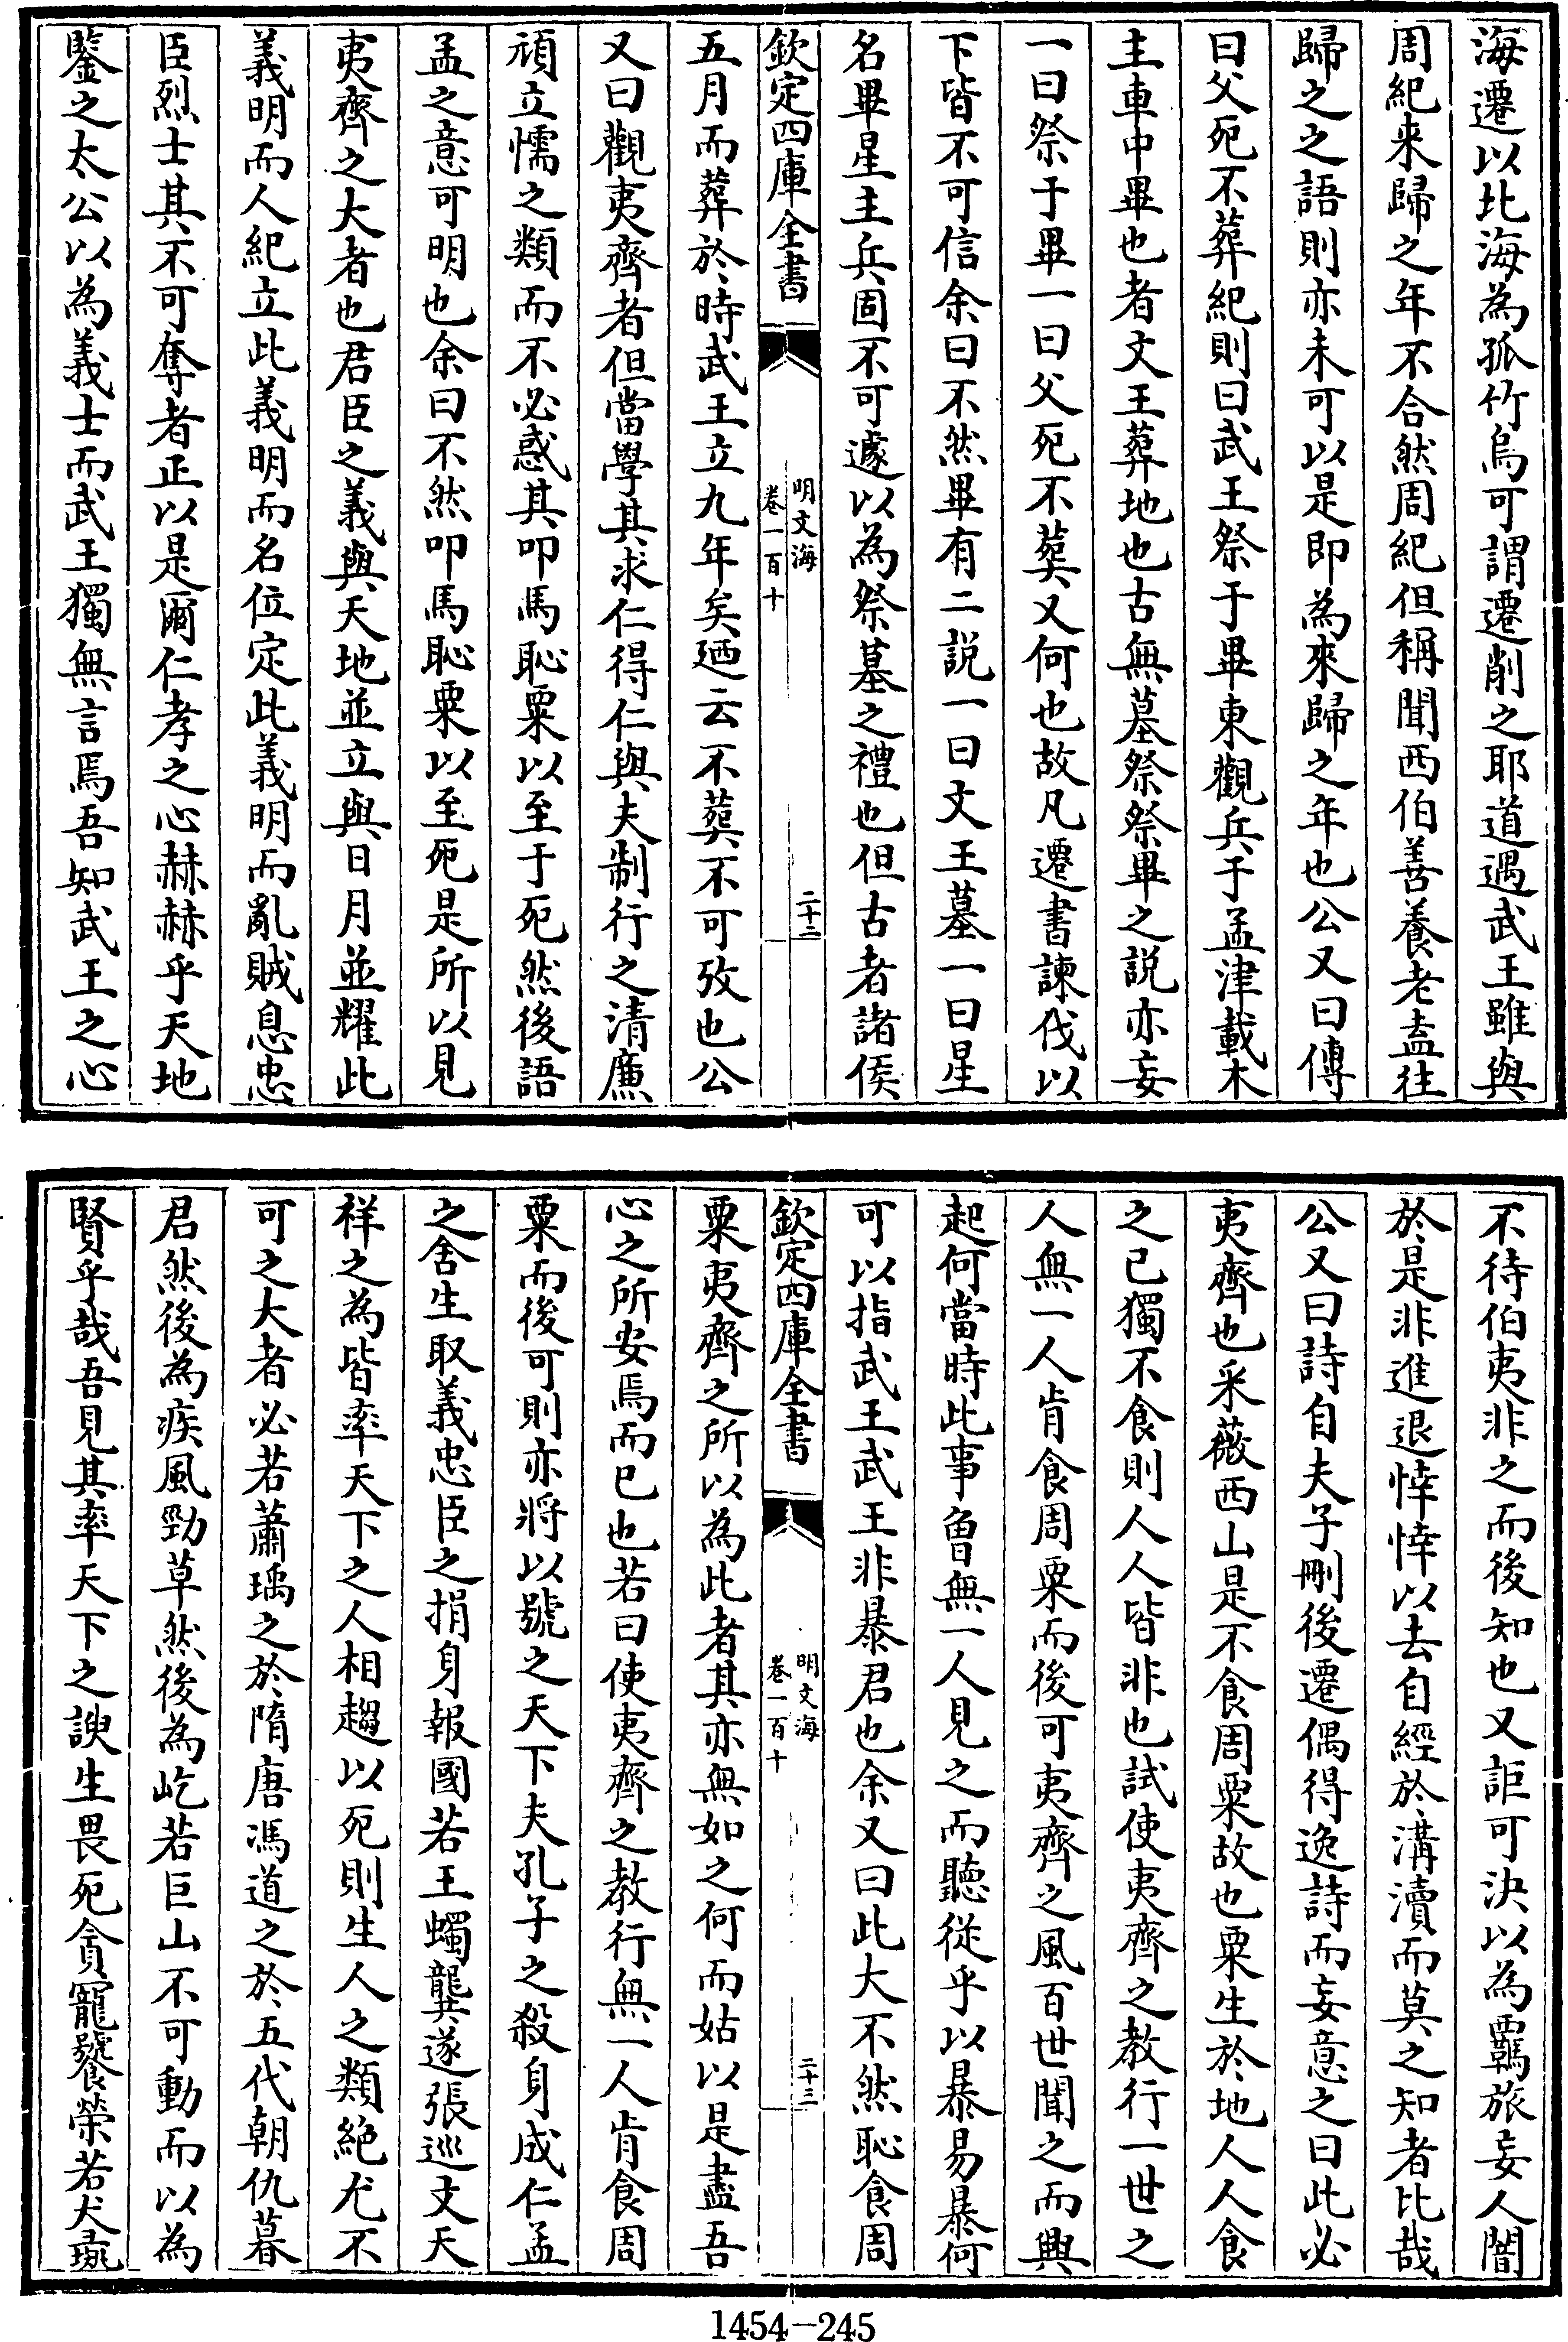 海遷以北海為孤竹烏可謂遷削之耶道遇武王雖與
周紀來歸之年不合然周紀但稱聞西伯善養老盍往
歸之之語則亦未可以是即為來歸之年也公又曰傳
曰父死不葬紀則曰武王祭于畢東觀兵于孟津載木
主車中畢也者文王葬地也古無墓祭祭畢之説亦妄
一曰祭于畢一曰父死不葬又何也故凡遷書諫伐以
下皆不可信余曰不然畢有二説一曰文王墓一曰星
名畢星主兵固不可遽以為祭墓之禮也但古者諸侯
欽定四庫全書
明文海
卷一百十
二十二
五月而葬於時武王立九年矣廼云不葬不可攷也公
又曰觀夷齊者但當學其求仁得仁與夫制行之清廉
頑立懦之類而不必惑其叩馬恥粟以至于死然後語
孟之意可明也余曰不然叩馬恥粟以至死是所以見
夷齊之大者也君臣之義與天地並立與日月並耀此
義明而人紀立此義明而名位定此義明而亂賊息忠
臣烈士其不可奪者正以是爾仁孝之心赫赫乎天地
鑒之太公以為義士而武王獨無言焉吾知武王之心
不待伯夷非之而後知也又詎可決以為羈旅妄人闇
於是非進退悻悻以去自經於溝瀆而莫之知者比哉
公又曰詩自夫子刪後遷偶得逸詩而妄意之曰此必
夷齊也采薇西山是不食周粟故也粟生於地人人食
之已獨不食則人人皆非也試使夷齊之教行一世之
人無一人肯食周粟而後可夷齊之風百世聞之而興
起何當時此事曾無一人見之而聽從乎以暴易暴何
可以指武王武王非暴君也余又曰此大不然恥食周
欽定四庫全書
明文海
卷一百十
二十三
粟夷齊之所以為此者其亦無如之何而姑以是盡吾
心之所安焉而已也若曰使夷齊之教行無一人肯食周
粟而後可則亦將以號之天下夫孔子之殺身成仁孟
之舍生取義忠臣之捐身報國若王蠋龔遂張巡文天
祥之為皆率天下之人相趨以死則生人之類絶尤不
可之大者必若蕭瑀之於隋唐馮道之於五代朝仇暮
君然後為疾風勁草然後為屹若巨山不可動而以為
賢乎哉吾見其率天下之諛生畏死貪寵饕榮若犬彘
1454-245